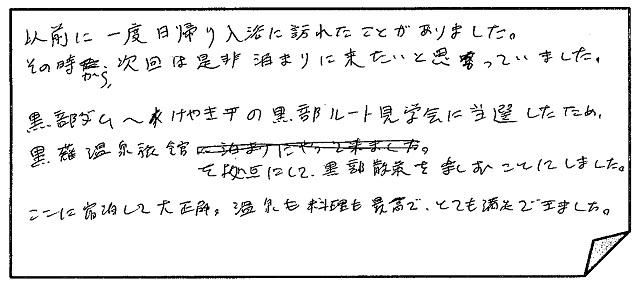 以前に一度日帰り入浴に訪れたことがありました。
その時から、次回は是非泊まりに来たいと思っていました。
黒部ダム〜欅平の黒部ルート見学会に当選したため、
黒薙温泉旅館に泊まりにやって来ました。
を拠点にして、黒部散策を楽しむことにしました。
ここに宿泊して大正解。温泉も料理も最高で、とても満足できました。